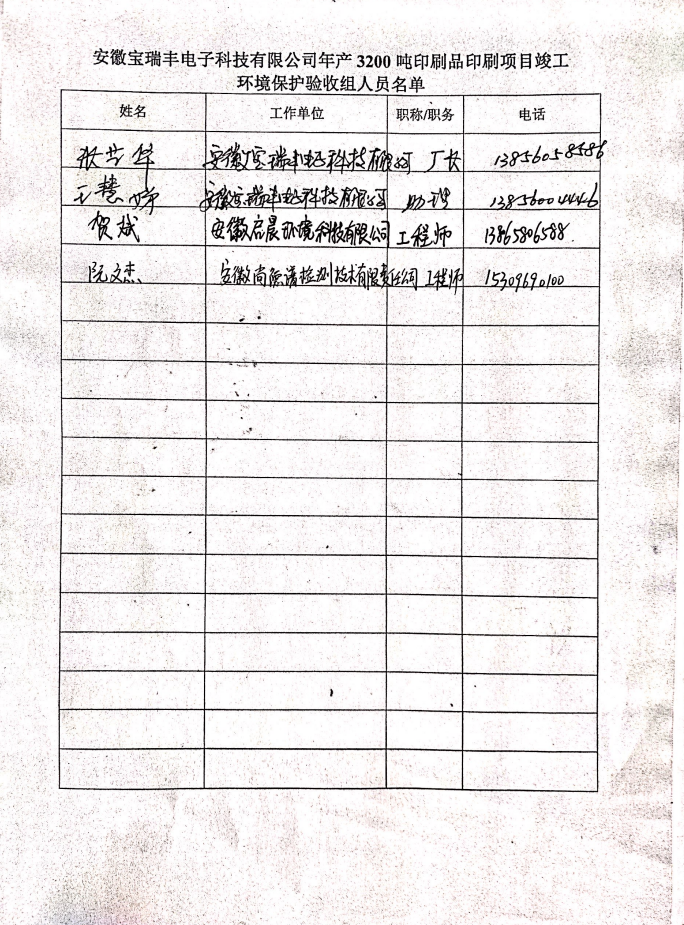 安徽宝瑞丰电子科技有限公司年产 3200 吨印刷品印刷项目竣工
环境保护验收组人员名单
姓名 工作单位 职称/职务 电话
华 安徽宝瑞丰电子科技有限公司 厂长 13856058586
王慧婷 安徽宝瑞丰电子科技有限公司 助理 13856004446
贺斌 安徽启晨环境科技有限公司 工程师 13865806588
阮文杰 安徽尚际谱检测技术有限责任公司 工程师 15309690100